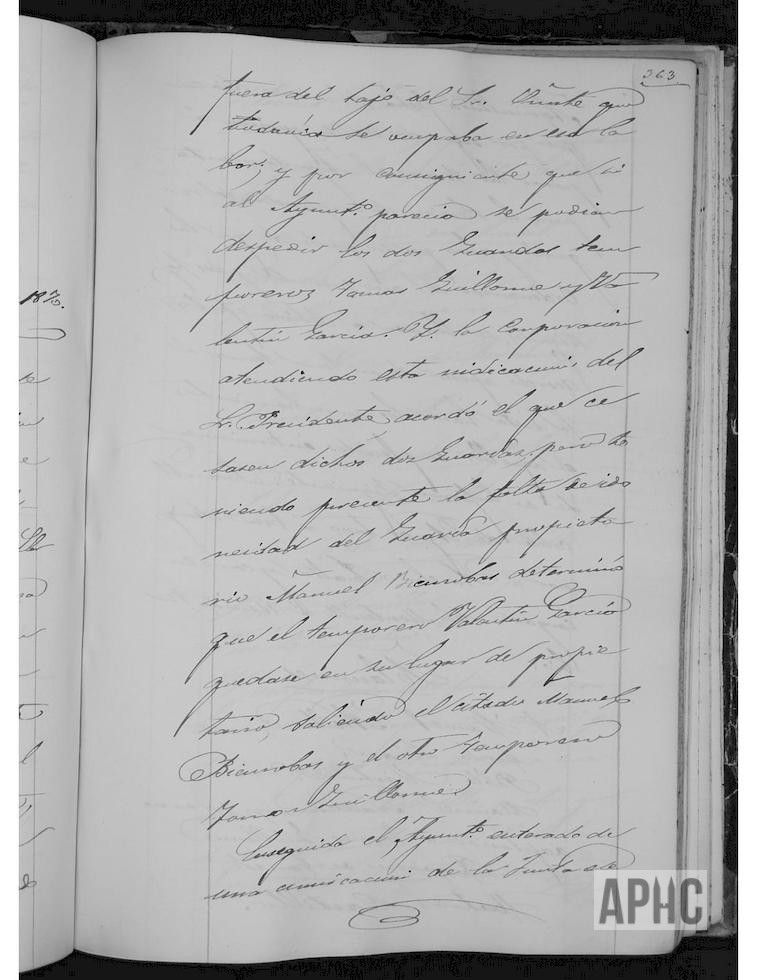 363
fuera del tajo del Sr. que
todavia se ocupaba en esa la
bor; y por consiguiente que si
al Ayunt.º parecia se podian
despedir los dos Guardas tem
poreros Tomas Guillome y Va
lentin Garcia. Y la Corporacion
atendiendo esta indicacion del
Sr. Presidente, acordó el que ce
sasen dichos dos Guardas, pero te
niendo presente la falta de ido
neidad del Guarda propieta
rio Manuel determinó
que el temporero Valentin Garcia
quedase en su lugar de propie
tario, saliendo el citado Manuel
y el otro temporero
Tomas Guillome.
Enseguida el Ayunt.º enterado de
una comunicacion de la Junta de
1870.
APHC